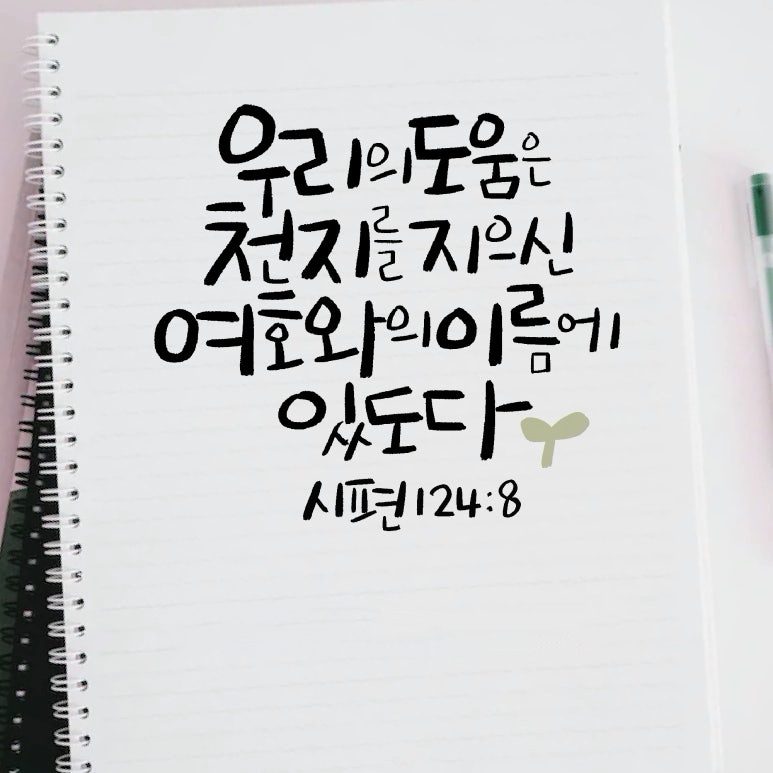 우리의 도움은
천지를 지으신
여호와의 이름에
있도다
시편 124:8